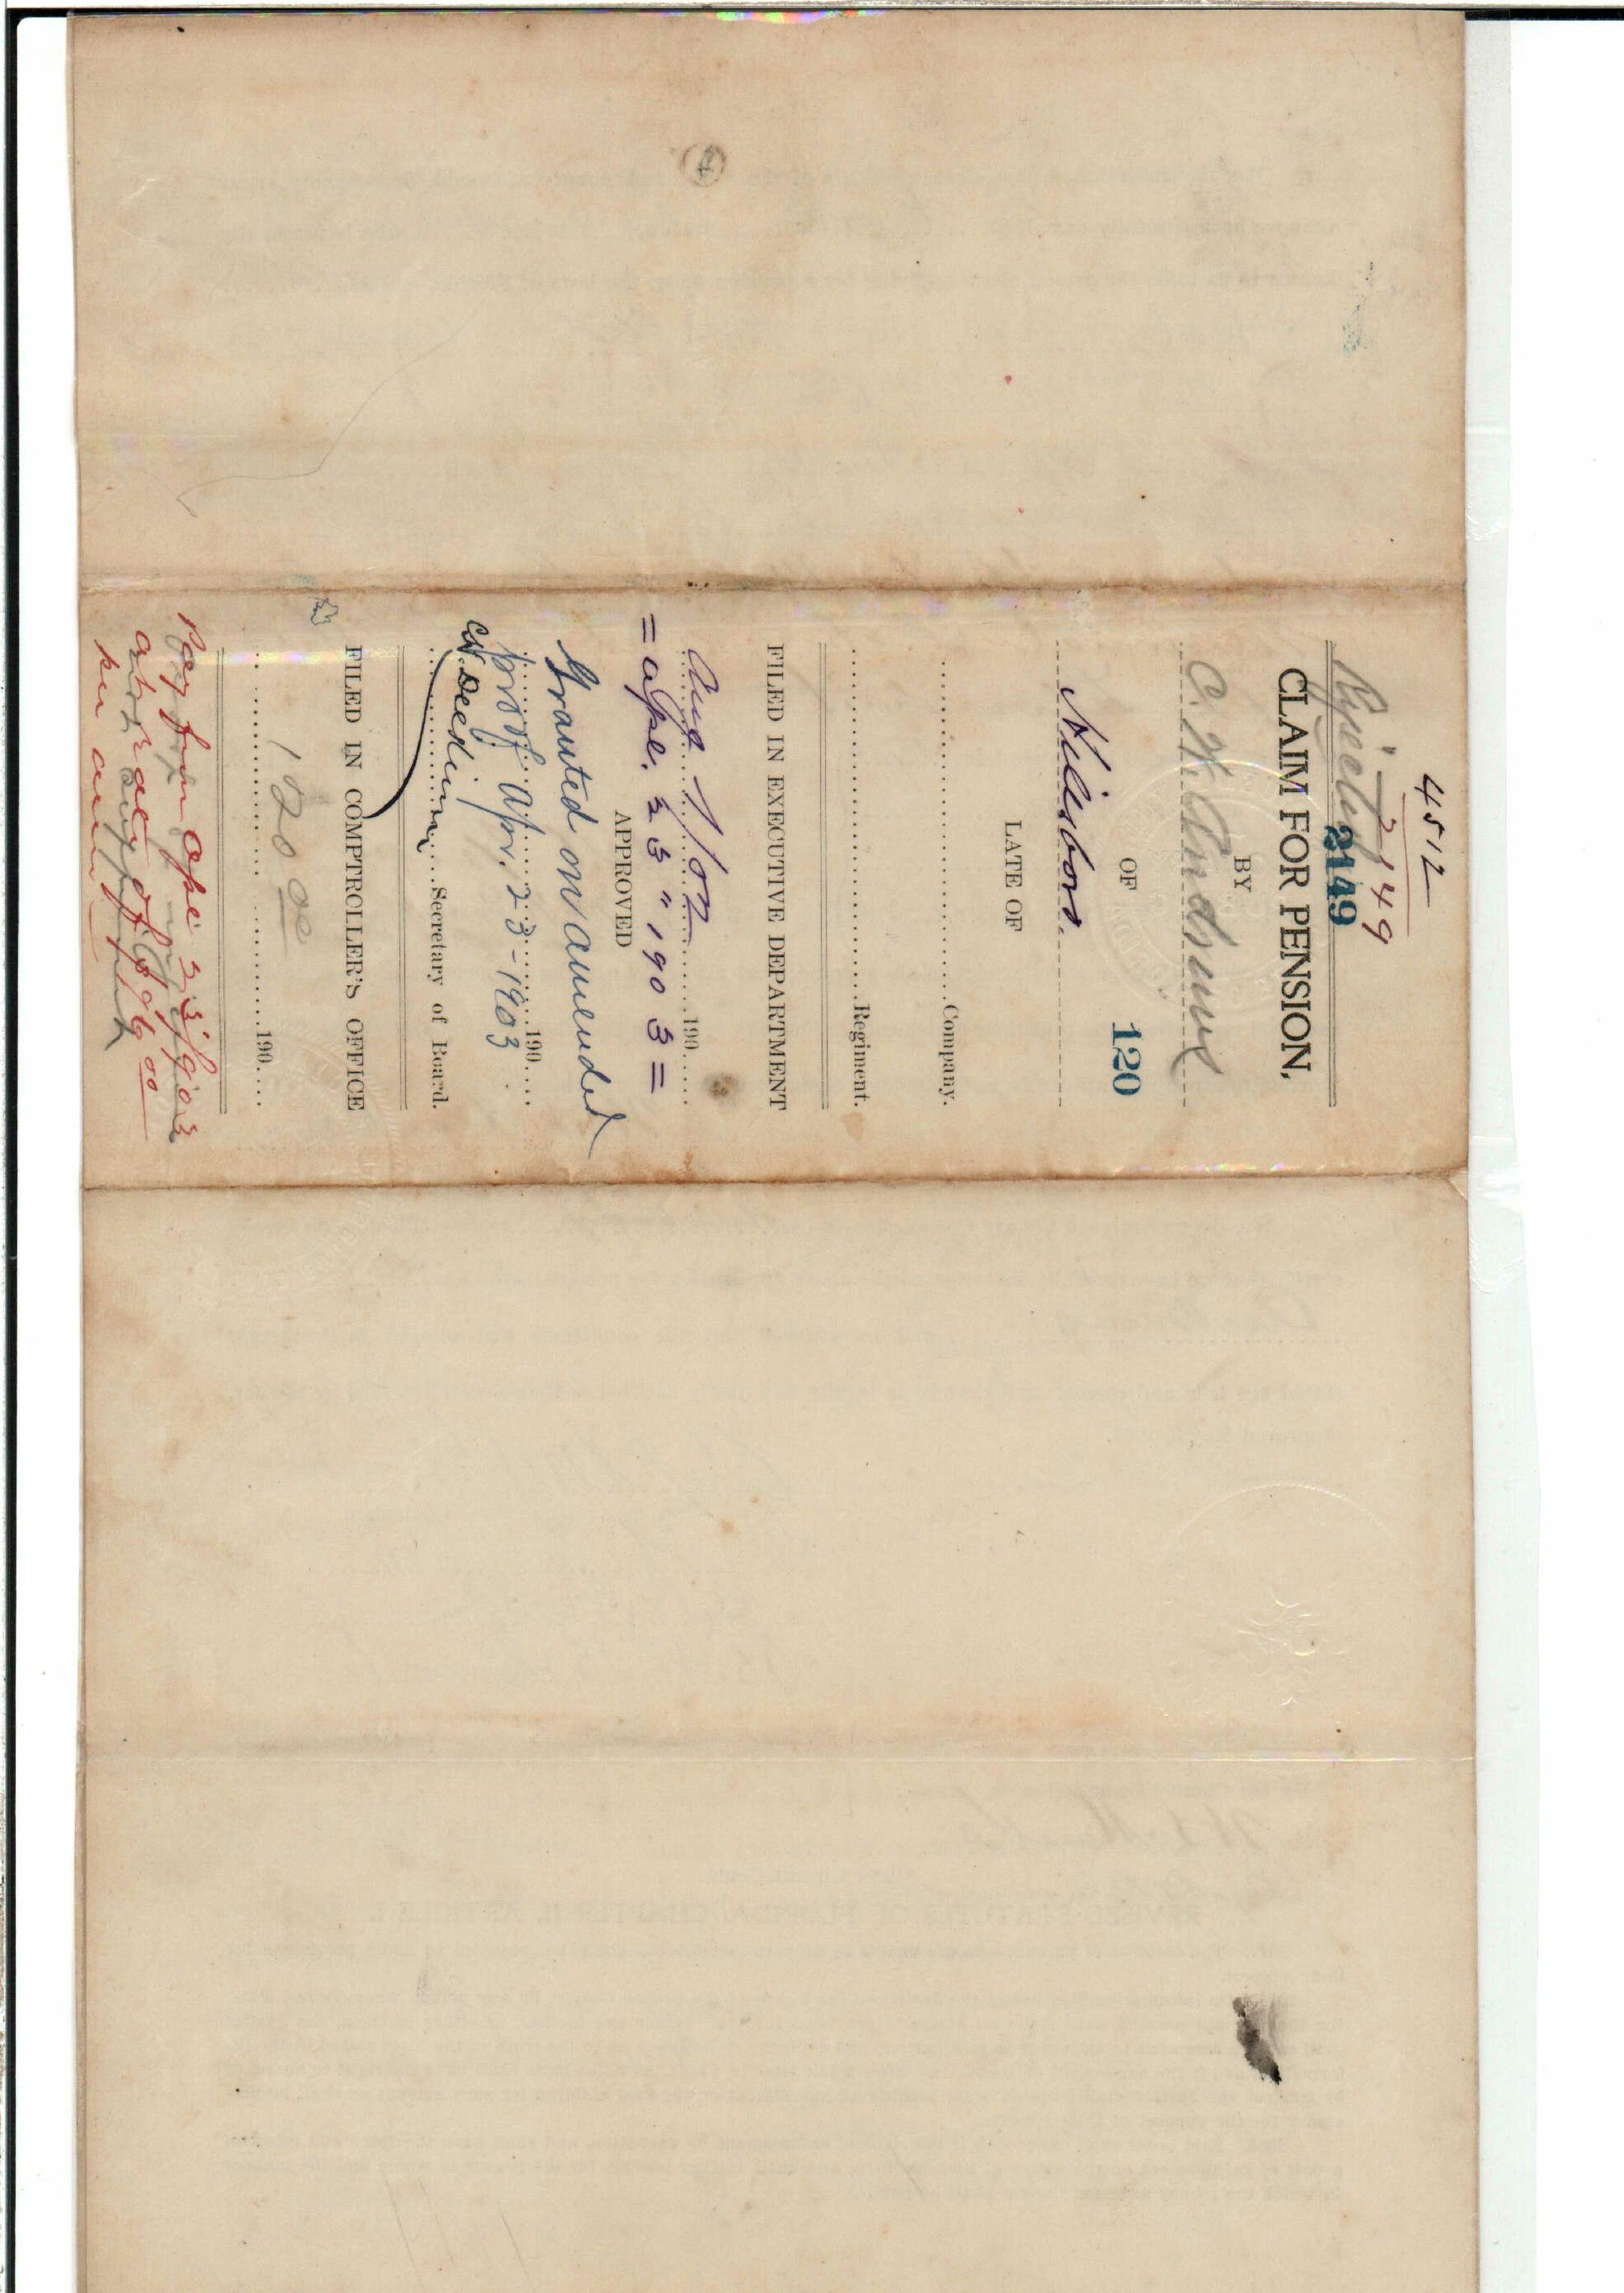 4512
2149
Rejected
2149
CLAIM FOR PENSION,
BY
C. W. Andrews
OF
120
Hillsboro.
LATE OF
Company.
Regiment.
FILED IN EXECUTIVE DEPARTMENT
Aug 1/02 190
= Apr. 23 " 1903 =
APPROVED
Granted on amended
proof Apr. 23-1903 190
Secretary of Board.
FILED IN COMPTROLLER'S OFFICE
120 00
190
Pay from Apr 23/903
at rate of $96 00
per ann
4